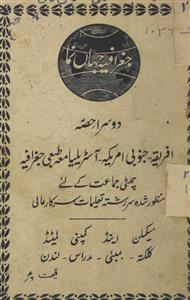 جغرافیہ جہاں نما
دوسرا حصہ
افریقہ - جنوبی امریکہ - آسٹریلیا مع طبیعی جغرافیہ
چھٹی جماعت کے لئے
منظور شدہ سررشتہ تعلیمات سرکار عالی
میکملن اینڈ کمپنی لمیٹڈ
کلکتہ - بمبئی - مدراس - لندن
قیمت